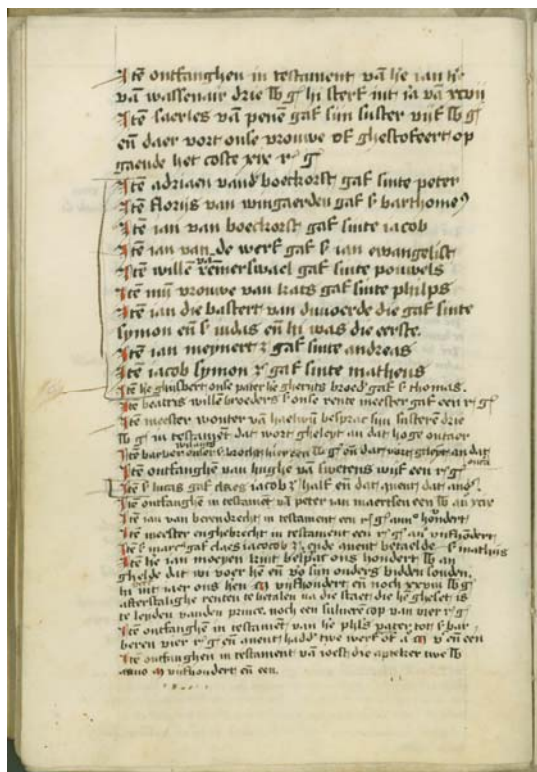 Itē ontfanghen in testament vā he ian h̄e
vā wassenair drie lb g hi sterf int ia vā xcvij
Itē saerles vā penē gaf sijn suster vijf lb g
eñ daer vort onse vrouwe of ghestofeert op
gaende het coste xix r g
Itē adriaen vand boeckorst gaf sinte peter
Itē florijs van wingaerden gaf s bartholome9
Itē ian van boeckorst gaf sinte iacob
Itē ian van de werf gaf s ian ewangelist
Itē willē van remerswael gaf sinte pouwels
Itē mij vrouwe van kats gaf sinte philps
Itē ian die bastert van duvoerde die gaf sinte
symon eñ s iudas eñ hi was die eerste.
Itē ian meynert z gaf sinte andreas
Itē iacob symon z gaf sinte matheus
Itē he ghisbert onse pater he gherijts broed gaf s thomas.
Ite beatris wille broeders s onse rente meester gaf een r g
Itē meester wouter vā besprac sijn susterē drie
lb g in testamēt dat wort gheleyt an dat hoge outaer
Itē barber hier een lb g eñ dat vort gheleyt an dat
Itē ontfanghē van hughe vā swetens wijf een r g outaer
Itē s lucas gaf claes iacob z half eñ dat quent dat and
Ite ontfanghē in testamēt vā peter ian maertsen een lb an xcix
Itē ian van berendrecht in testament een r g anno hondert
Itē meester enghebrecht in testament een r g an vijfhondert
Itē s marc gaf claes iacocob z, ende quent betaelde s mathijs
Itē he ian moeyen kint besprac ons hondert lb an
ghelde dat wi voer he eñ vo sijn onders bidden souden.
Int iaer ons hen vijfhondert eñ noch xxviij lb g
afterstalighe renten te betalen na die staet die he gheset is
te leyden vanden prince. noch een suluere cop van vier r g
Itē ontfanghē in testamēt van he phls pater tot s bar
beren vier r g eñ quent hadd twe werf of a v eñ een
Itē ontfanghen in testament vā ioest die apteker twe lb
anno vijfhondert eñ een.